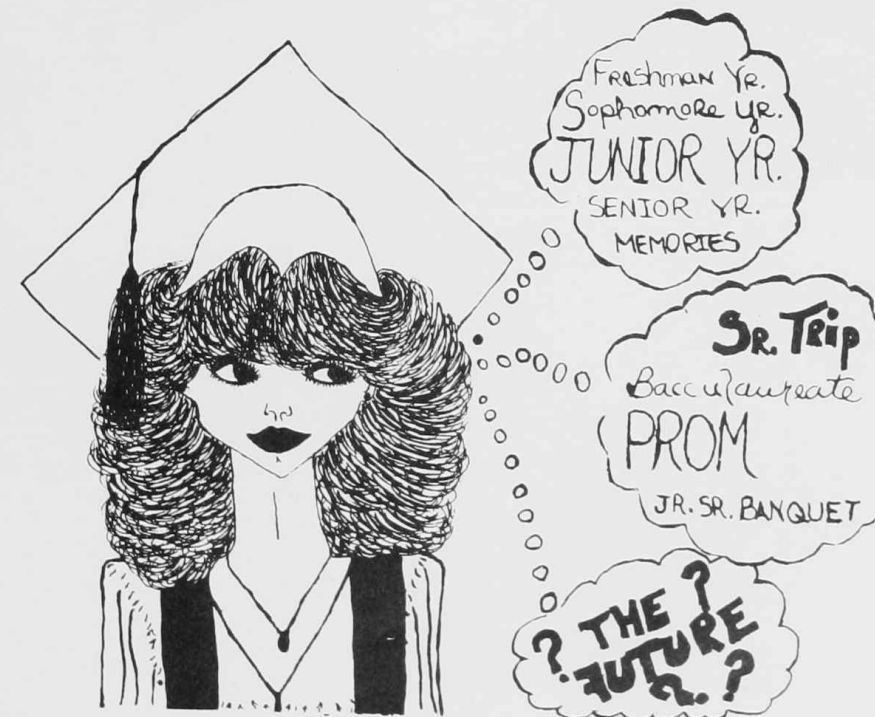 Freshman Yr.
Sophomore Yr.
JUNIOR YR.
SENIOR YR.
MEMORIES
SR. TRIP
Baccalaureate
PROM
JR. SR. BANQUET
? THE ?
FUTURE
? . ?